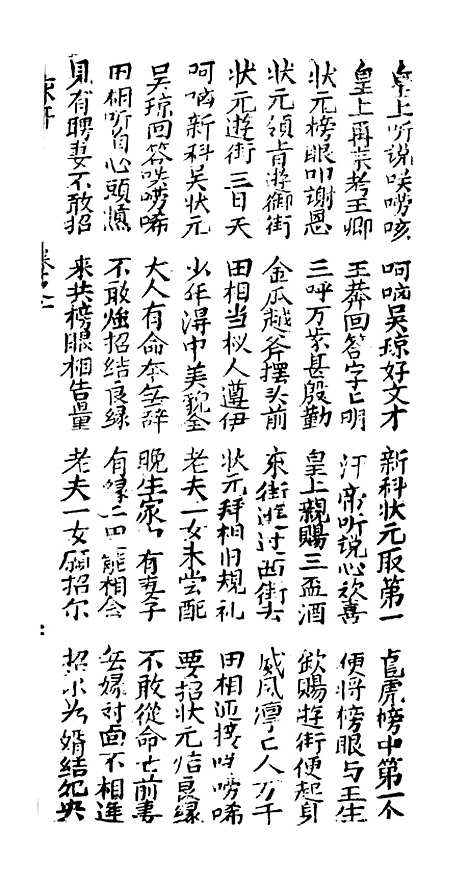 皇上听说咲唠咳 呵呐吴琼好文才 新科状元取第一 虎榜中第一个
皇上再来考王卿 王莽回答字〻明 汗帝听说心欢喜 便将榜眼与王生
状元榜眼叩谢恩 三呼万岁甚殷勤 皇上親賜三盃酒 钦赐遊街便起身
状元领旨遊御街 金瓜越斧摆头前 东街遊过西街去 威风凛〻人万千
状元遊街三日天 田相当权人遵伊 状元拜相旧规礼 田相迎接咲唠唏
呵呐新科吴状元 少年淂中美貌全 老夫一女未尝配 要招状元结良缘
吴琼回答咲唠唏 大人有命本无辞 晚生家内有妻子 不敢從命前妻
田相听自心頭焦 不敢强招结良缘 有缘千里能相会 无缘对面不相逢
見有聘妻不敢招 来共榜眼相告量 老夫一女愿招尔 招尔为婿结央